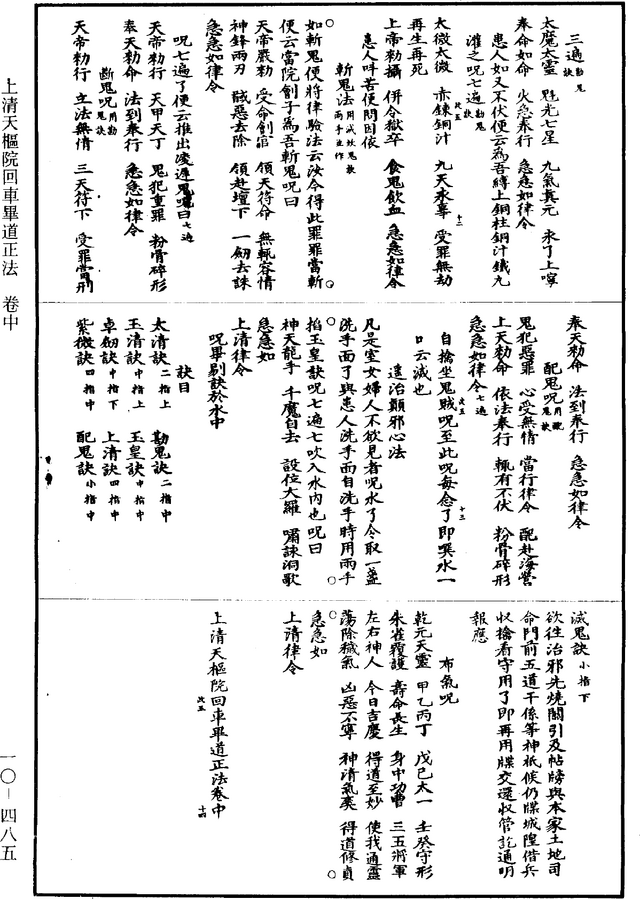 三遍勘鬼訣
太魔太靈　魁光七星　九氣真元　永了上寧
奉命如命　火急奉行　急急如律令
患人如又不伏便云為吾縛上銅柱銅汁鐵丸
灌之呪七遍勘鬼訣
太微太微　亦鍊銅汁　九天永辜　受罪無劫
再生再死
上帝勑攝　併令獄卒　食鬼飲血　急急如律令
患人呼苦便問因依
斬鬼法
如斬鬼便將律驗法云汝今得此罪罪當斬
便云當院劊子為吾斬鬼呪曰
天帝嚴勑　受命劊官　領天符命　無輒容情
神鋒兩刃　馘惡去除　領赴壇下　一劒去誅
急急如律令
呪七遍了便云推出凌遲鬼囑曰七遍
天帝勑行　天甲天丁　鬼犯重罪　粉骨碎形
奉天勑命　法到奉行　急急如律令
斷鬼呪用勘鬼訣
天帝勑行　立法無情　三天符下　受罪當刑
奉天勑命　法到奉行　急急如律令
配鬼呪
鬼犯惡罪　心受無情　當行律令　配赴海營
上天勑命　依法奉行　輒有不伏　粉骨碎形
急急如律令七遍
自擒坐鬼賊呪至此呪每念了即噀水一
口云滅也
遣治顛邪心法
凡是室女婦人不欲見者呪水了令取一盞
洗手面了與患人洗手面自洗手時用兩手
掐玉皇訣呪七遍七吹入水內也呪曰
神天龍手　千魔自去　設位大羅　嘯誅洞歌
急急如
上清律令
呪畢剔訣於水中
訣目
太清訣二指上　勘鬼訣二指中
玉清訣中指上　玉皇訣中指中
卓劒訣中指下　上清訣四指中
紫微訣四指中　配鬼訣小指中
滅鬼訣小指下
欲往治邪先燒關引及帖牓與本家土地司
命門前五道干係等神祇候仍牒城隍借兵
收擒看守用了即再用牒交還收管訖通明
報應
布氣呪
乾元天靈　甲乙丙丁　戊己太一　壬癸守形
朱雀覆護　壽命長生　身中功曹　三五將軍
左右神人　今日吉慶　得道至妙　使我通靈
蕩除穢氣　凶惡不寧　神清氣爽　得道修真
急急如
上清律令
上清天樞院回車畢道正法卷中
上清天樞院回車畢道正法　卷中
一〇－四八五